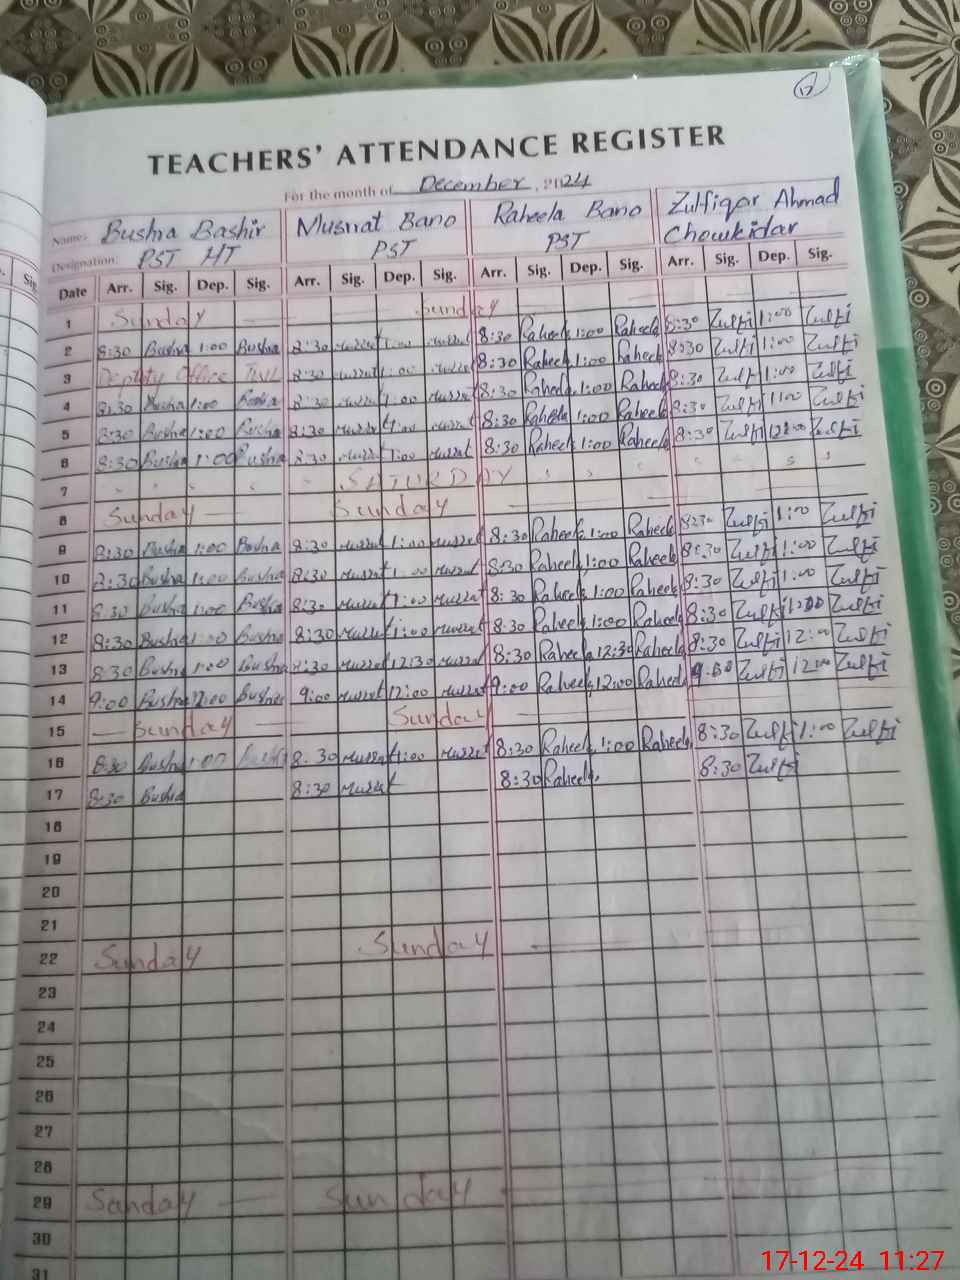 17
TEACHERS' ATTENDANCE REGISTER
For the month of December, 2024
Name:- Bushra Bashir Musrrat Bano Raheela Bano Zulfiqar Ahmad
Designation: PST HT PST PST Chowkidar
Date Arr. Sig. Dep. Sig. Arr. Sig. Dep. Sig. Arr. Sig. Dep. Sig. Arr. Sig. Dep. Sig.
1 Sunday Sunday
2 8:30 Bushra 1:00 Bushra 8:30 Musrrat 1:00 Musrrat 8:30 Raheela 1:00 Raheela 8:30 Zulfi 1:00 Zulfi
3 Deputy Office 8:30 Musrrat 1:00 Musrrat 8:30 Raheela 1:00 Raheela 8:30 Zulfi 1:00 Zulfi
4 8:30 Bushra 1:00 Bushra 8:30 Musrrat 1:00 Musrrat 8:30 Raheela 1:00 Raheela 8:30 Zulfi 1:00 Zulfi
5 8:30 Bushra 1:00 Bushra 8:30 Musrrat 1:00 Musrrat 8:30 Raheela 1:00 Raheela 8:30 Zulfi 1:00 Zulfi
6 8:30 Bushra 1:00 Bushra 8:30 Musrrat 1:00 Musrrat 8:30 Raheela 1:00 Raheela 8:30 Zulfi 12:00 Zulfi
7 SATURDAY
8 Sunday Sunday
9 8:30 Bushra 1:00 Bushra 8:30 Musrrat 1:00 Musrrat 8:30 Raheela 1:00 Raheela 8:30 Zulfi 1:00 Zulfi
10 8:30 Bushra 1:00 Bushra 8:30 Musrrat 1:00 Musrrat 8:30 Raheela 1:00 Raheela 8:30 Zulfi 1:00 Zulfi
11 8:30 Bushra 1:00 Bushra 8:30 Musrrat 1:00 Musrrat 8:30 Raheela 1:00 Raheela 8:30 Zulfi 1:00 Zulfi
12 8:30 Bushra 1:00 Bushra 8:30 Musrrat 1:00 Musrrat 8:30 Raheela 1:00 Raheela 8:30 Zulfi 1:00 Zulfi
13 8:30 Bushra 1:00 Bushra 8:30 Musrrat 12:30 Musrrat 8:30 Raheela 12:30 Raheela 8:30 Zulfi 12:00 Zulfi
14 9:00 Bushra 12:00 Bushra 9:00 Musrrat 12:00 Musrrat 9:00 Raheela 12:00 Raheela 9:00 Zulfi 12:00 Zulfi
15 Sunday Sunday
16 8:30 Bushra 1:00 Bushra 8:30 Musrrat 1:00 Musrrat 8:30 Raheela 1:00 Raheela 8:30 Zulfi 1:00 Zulfi
17 8:30 Bushra 8:30 Musrrat 8:30 Raheela 8:30 Zulfi
18
19
20
21
22 Sunday Sunday
23
24
25
26
27
28
29 Sunday Sunday
30
31
17-12-24 11:27